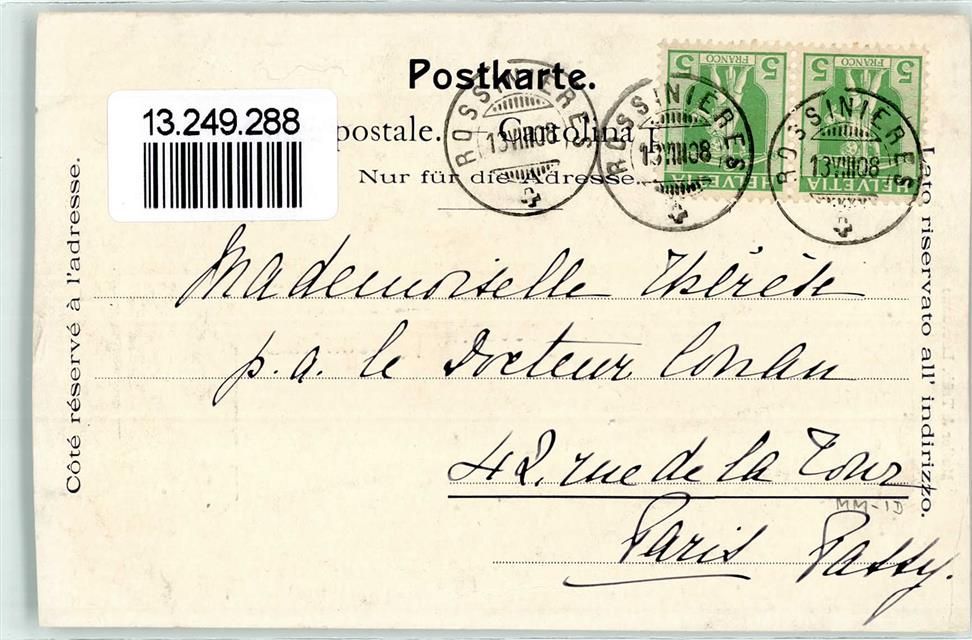 Postkarte.
13.249.288
postale. — Cartolina p
Nur für die Adresse.
5 FRANCO 5 5 FRANCO 5
HELVETIA HELVETIA
ROSSINIERES 13.VIII.08
ROSSINIERES 13.VIII.08
ROSSINIERES 13.VIII.08
Côté réservé à l'adresse.
Lato riservato all' indirizzo.
Mademoiselle Thérèse
p. a. le Docteur Conan
42, rue de la Tour
MM-1D
Paris Passy.